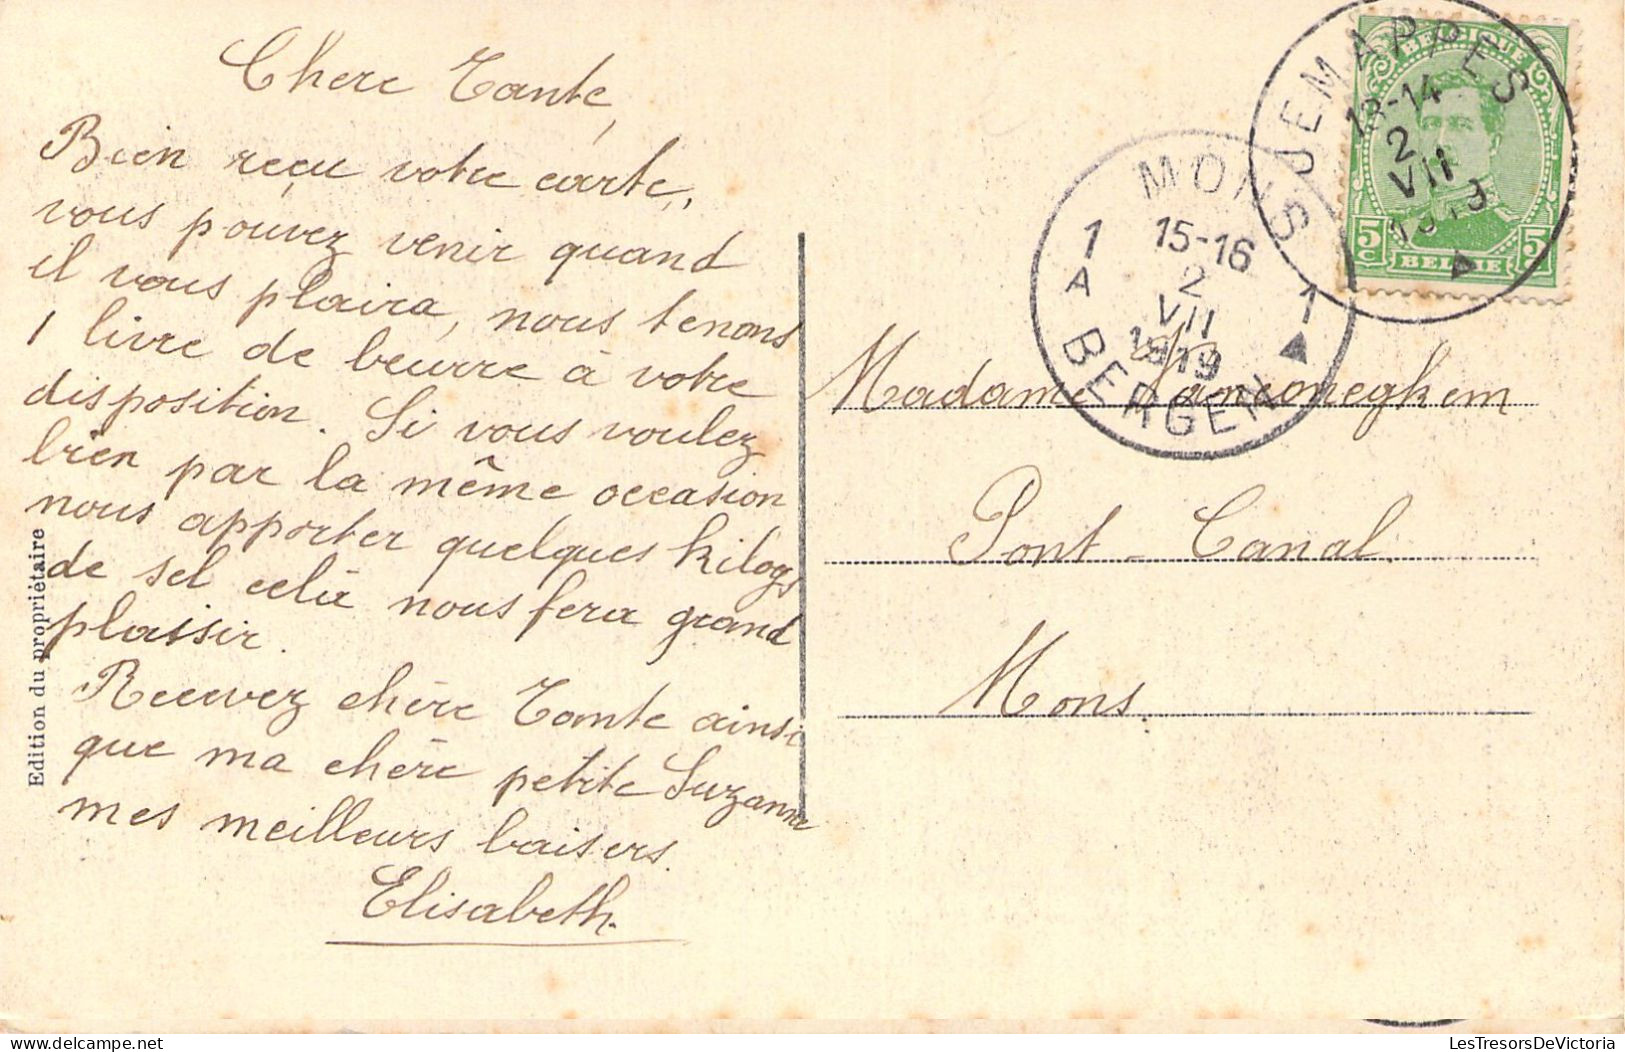 Chere Tante,
Bien reçu votre carte,
vous pouvez venir quand
il vous plaira, nous tenons
1 livre de beurre à votre
disposition. Si vous voulez
bien par la même occasion
nous apporter quelques kilogs
de sel celà nous fera grand
plaisir.
Recevez chère Tante ainsi
que ma chère petite Suzanne
mes meilleurs baisers.
Elisabeth.
Edition du propriétaire
JEMAPPES
13-14
2
VII
1919
BELGIQUE
5c 5c
BELGIE
MONS
1 1
A
15-16
2
VII
1919
BERGEN
Madame
Pont-Canal.
Mons.
©LesTresorsDeVictoria.com
LesTresorsDeVictoria